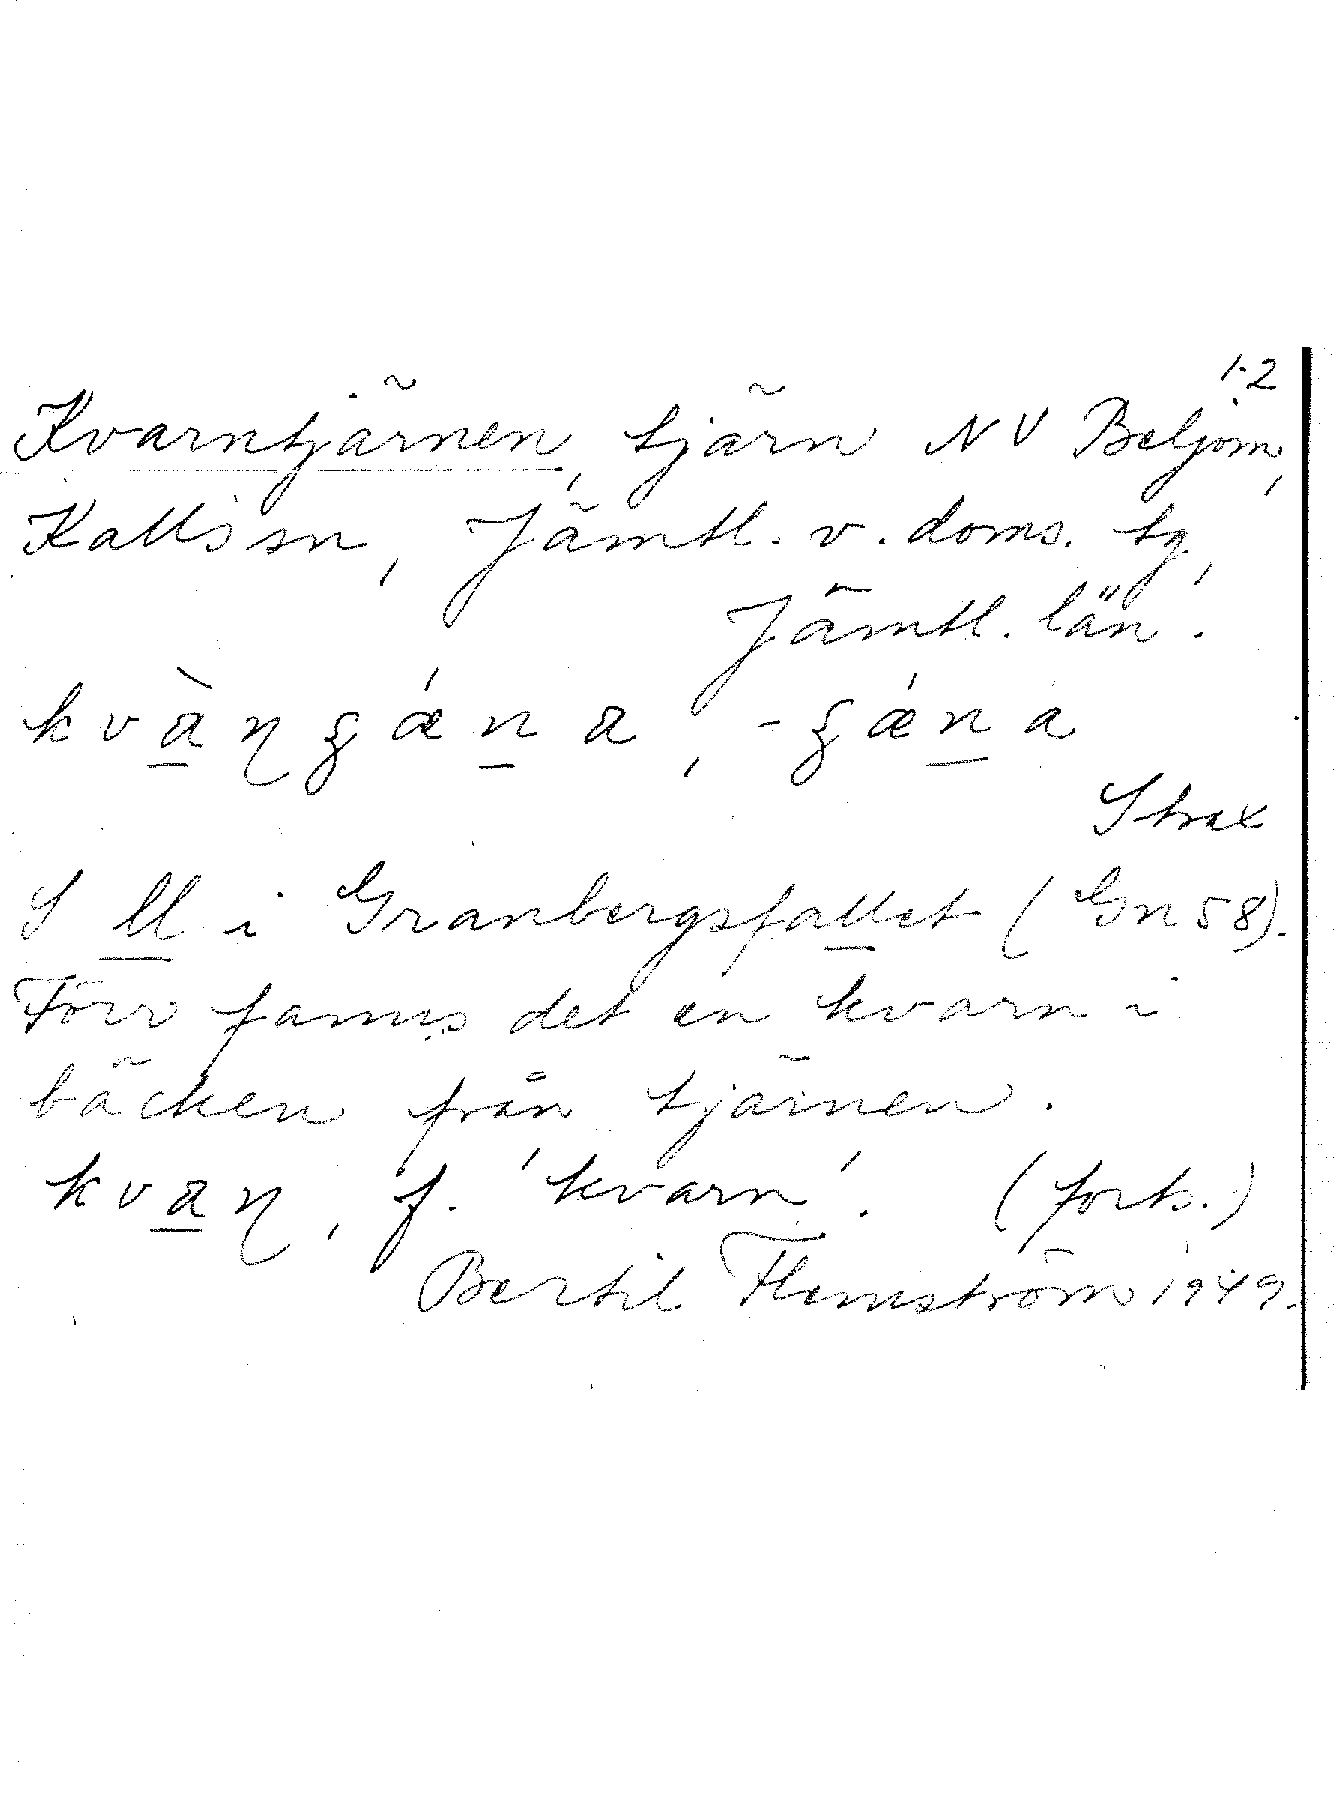 1-2
Kvarntjärnen, tjärn NV Beljom,
Kalls sn, Jämtl. v. doms. tg,
Jämtl. län.
kvàŋgǽna, -gǽna
Strax
S ll i Granbergsfallet (Gn 58).
Förr fanns det en kvarn i
bäcken från tjärnen.
kvaɳ, f. 'kvarn'. (forts.)
Bertil Flemström 1949.